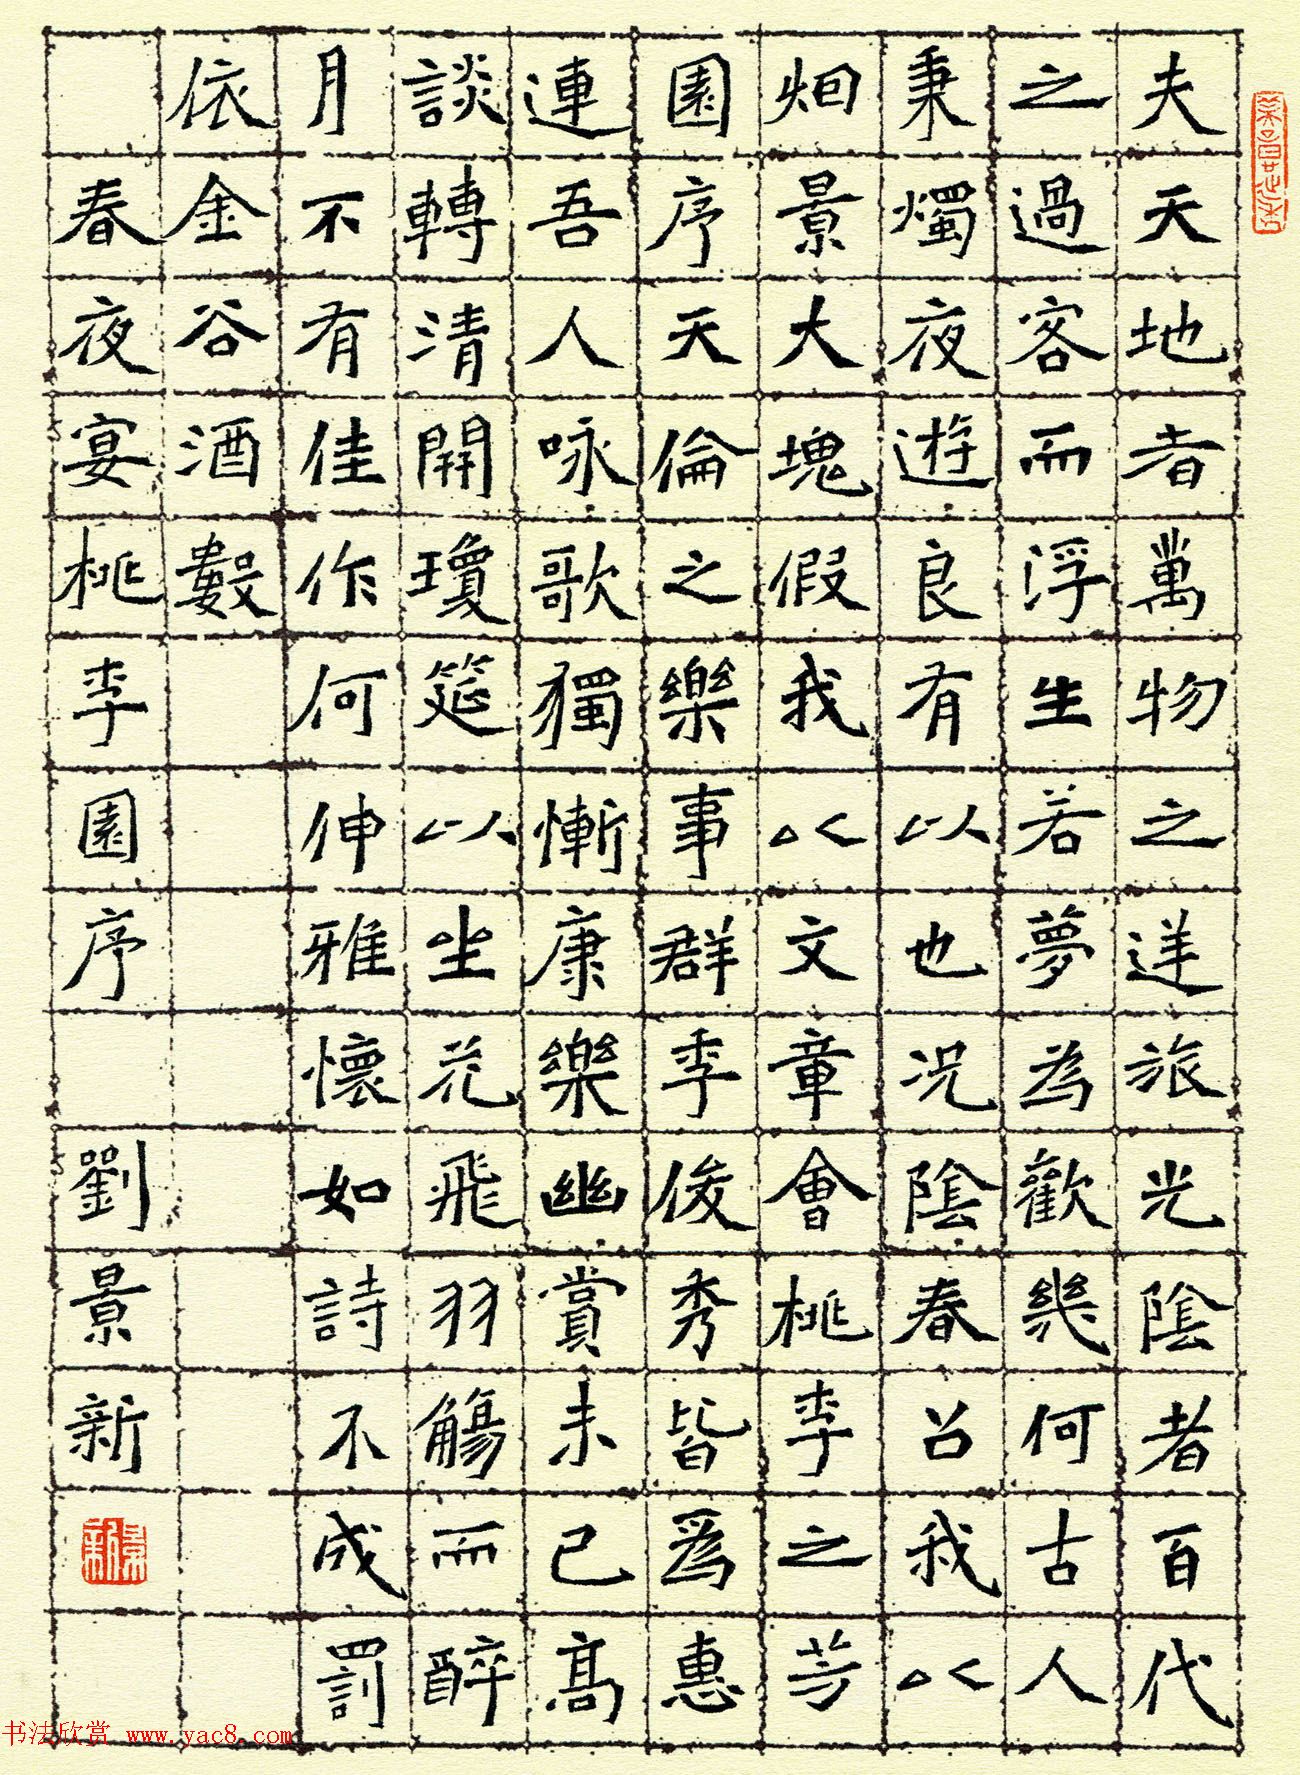 夫天地者萬物之逆旅光陰者百代
之過客而浮生若夢為歡幾何古人
秉燭夜遊良有以也況陰春召我以
烟景大塊假我以文章會桃李之芳
園序天倫之樂事群季俊秀皆爲惠
連吾人咏歌獨慚康樂幽賞未已高
談轉清開瓊筵以坐花飛羽觴而醉
月不有佳作何伸雅懷如詩不成罰
依金谷酒數
春夜宴桃李園序 劉景新
景新
书法欣赏 www.yac8.com